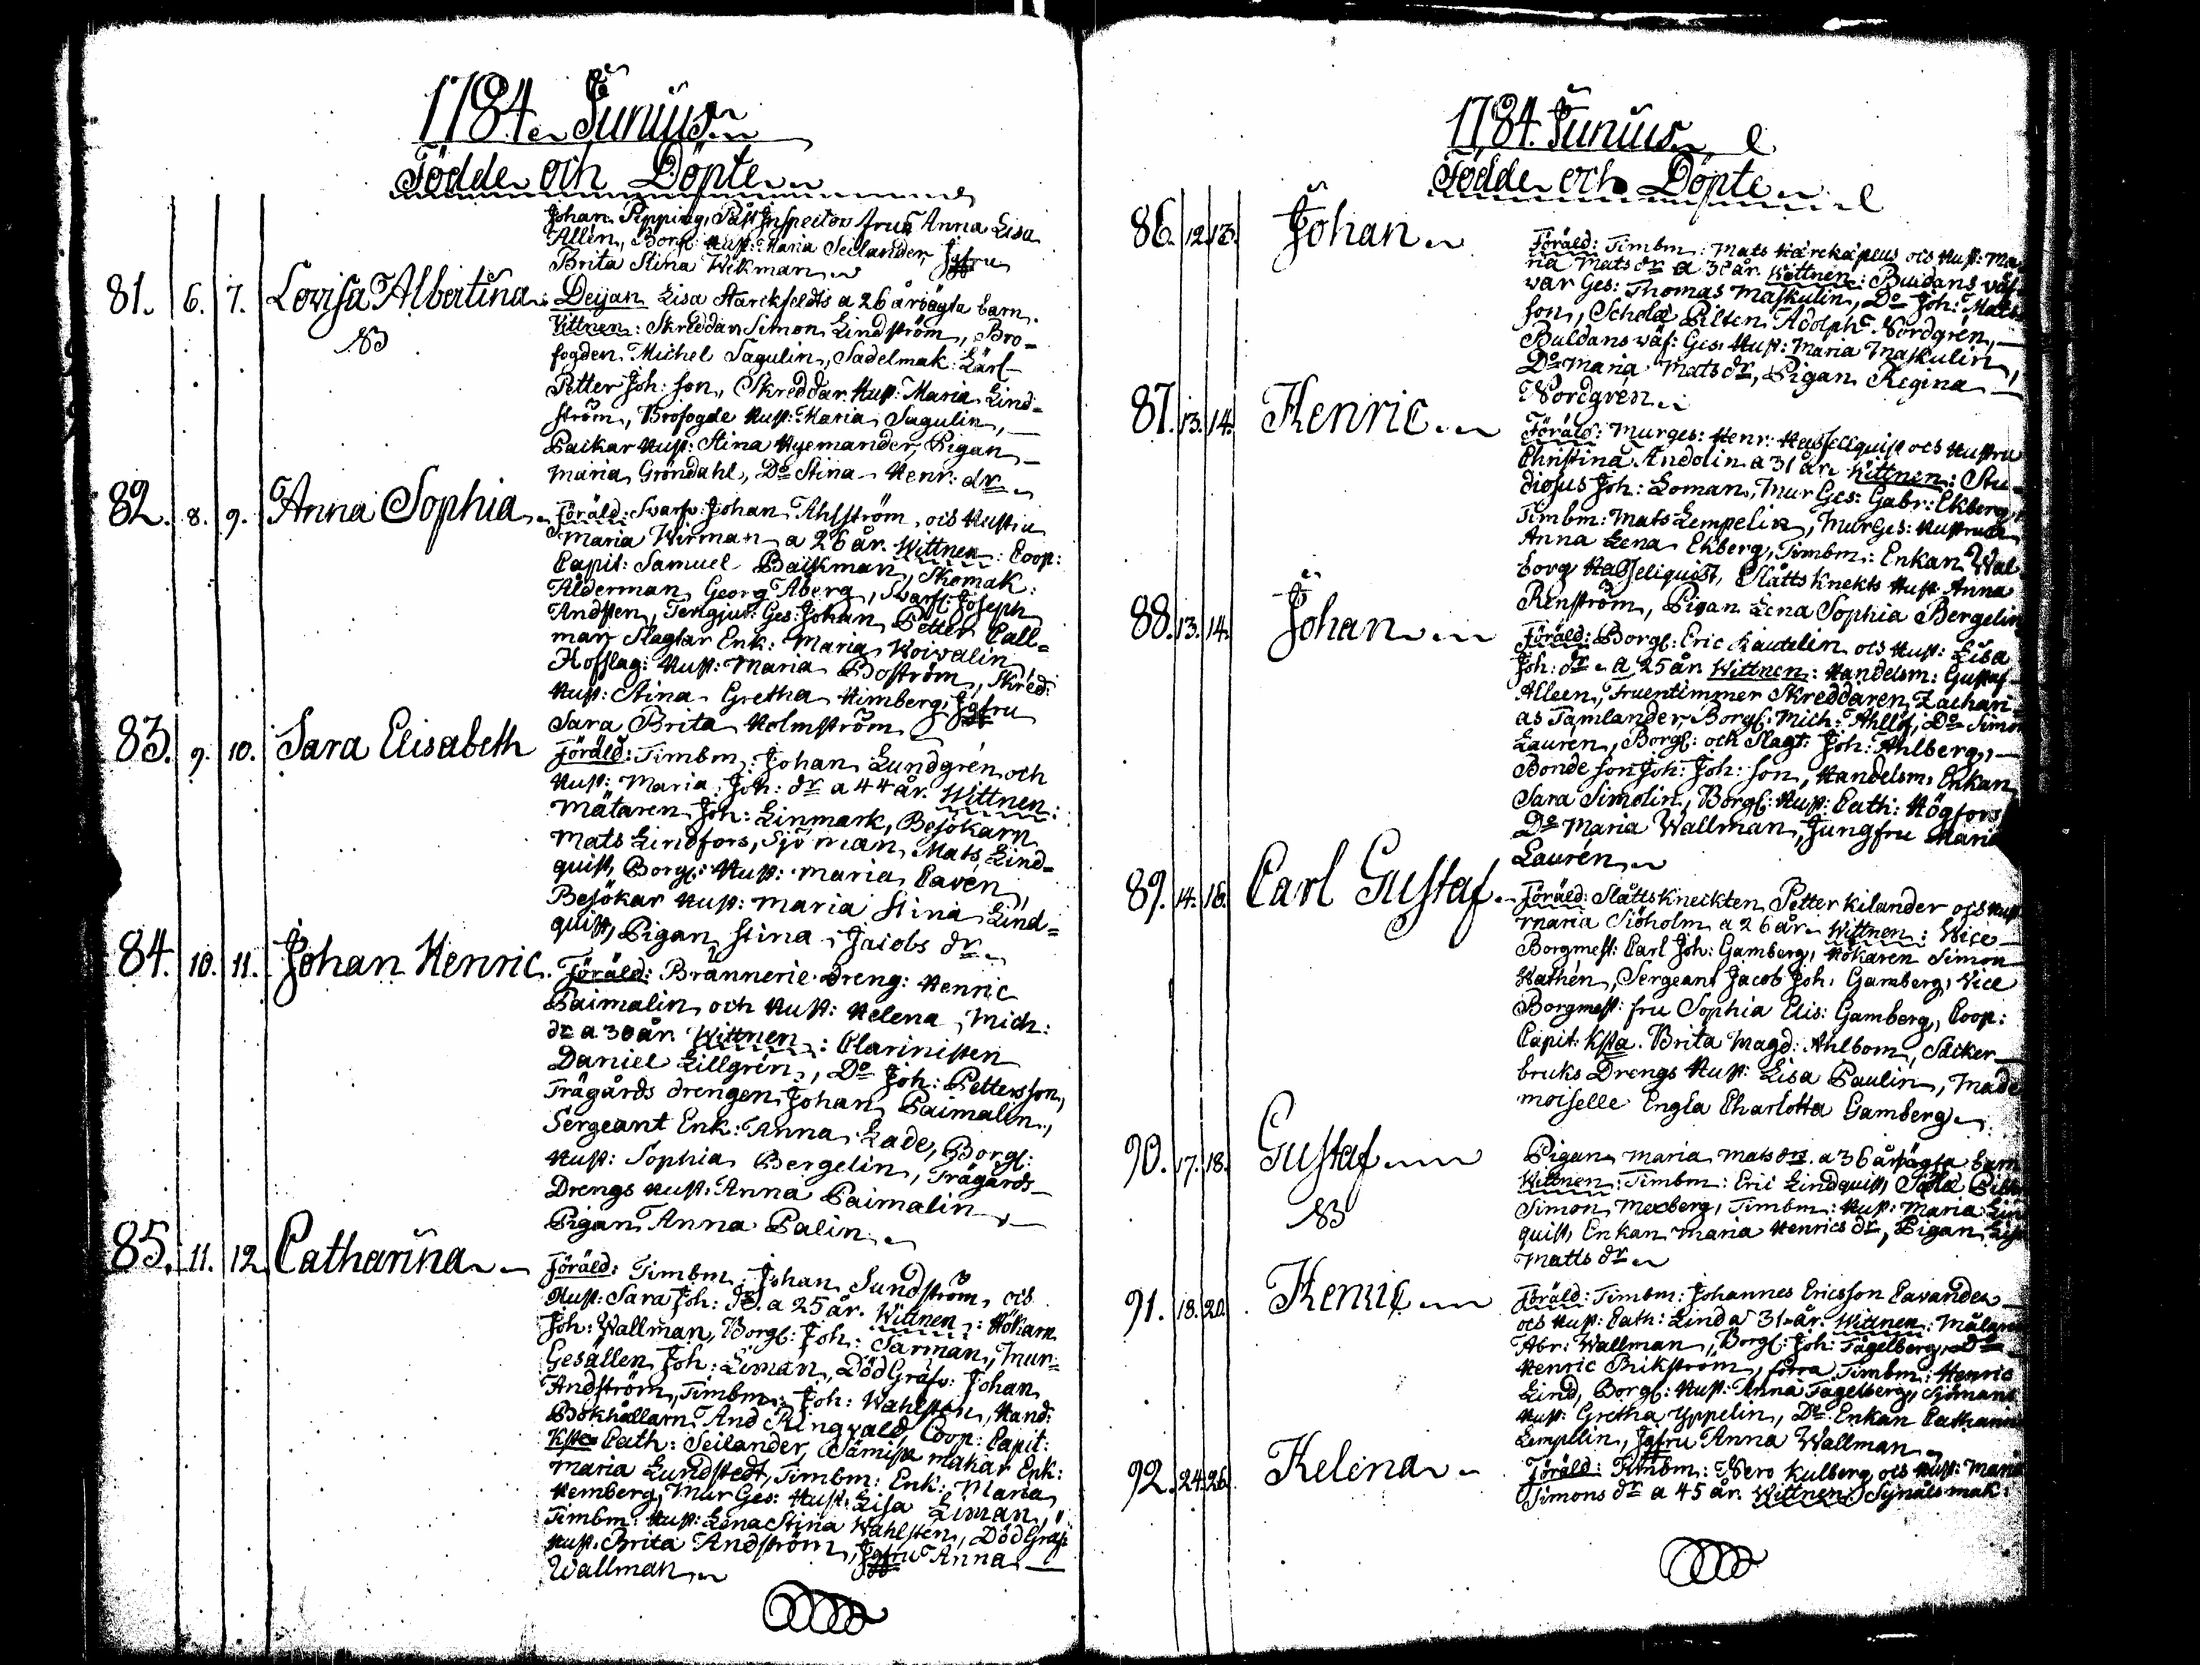 1784 Junius
Födde och Döpte
Johan Pipping, Påst Inspector frun Anna Lisa
Allén, Borgl: Hust: Maria Seilander, Jgfru
Brita Stina Wikman
81. 6. 7. Lovisa Albertina Deijan Lisa Starckfeldts a 26 år oägta barn.
NB Vittnen: Skreddar Simon Lindström, Bro-
fogden Michel Sagulin, Sadelmak: Lärl
Petter Joh: son, Skreddar Hust: Maria Lind=
ström, Brofogde Hust: Maria Sagulin,
Packar Hust: Stina Nyemander, Pigan
Maria Gröndahl, Do Stina Henr: dr
82. 8. 9. Anna Sophia Föräld: Svarfv: Johan Ahlström, och Hustru
Maria Wirman a 26 år. Wittnen: Coop:
Capit: Samuel Bäckman, Skomak:
Ålderman Georg Åberg, Svarfv: Joseph
Andsten, Tengjut: Ges: Johan Petter Call=
man Slagtar Enk: Maria Koivalin,
Hofslag: Hust: Maria Boström, Skred:
Hust: Stina Gretha Himberg, Jgfru
Sara Brita Holmström
83. 9. 10. Sara Elisabeth Föräld: Timbm: Johan Lundgrén och
Hust: Maria Joh: dr a 44 år. Wittnen:
Mätaren Joh: Linmark, Besökarn
Mats Lindfors, Sjöman Mats Lind=
quist, Borgl: Hust: Maria Cavén,
Besökar Hust: Maria Stina Lind=
quist, Pigan Stina Jacobs dr
84. 10. 11. Johan Henric Föräld: Brännerie dreng: Henric
Paimalin och Hust: Helena Mich:
dr a 30 år. Wittnen: Clarinisten
Daniel Lillgrén, Do Joh: Pettersson,
Trägårds drengen Johan Paimalin,
Sergeant Enk: Anna Lade, Borgl:
Hust: Sophia Bergelin, Trägårds
Drengs Hust: Anna Paimalin,
Pigan Anna Palin
85. 11. 12 Catharina Föräld: Timbm: Johan Sundström, och
Hust: Sara Joh: dr. a 25 år. Wittnen: Hökarn
Joh: Wallman, Borgl: Joh: Sarman, Mur=
Gesällen Joh: Liman, Död Gräfv: Johan
Andström, Timbm: Joh: Wahlsten, Hand:
Bokhållarn And Ringvald, Coop: Capit:
Ksta Cath: Seilander, Sämisk makar Enk:
Maria Lundstedt, Timbm: Enk: Maria
Hemberg, Mur Ges: Hust: Lisa Liman,
Timbm: Hust: Lena Stina Wahlsten, Död Gräf:
Hust: Brita Andström, Jgfru Anna
Wallman
1784. Junius
Födde och Döpte
86. 12 13. Johan Föräld: Timbm: Mats Härckäpeus och Hust: Ma
ria Mats dr a 30 år. Wittnen: Buldans väf
var Ges: Thomas Maskulin, Do Joh: Mats
son, Scholæ Pilten Adolph Nordgrén,
Buldans väf: Ges: Hust: Maria Maskulin,
Do Maria Mats dr, Pigan Regina
Nordgrén
87. 13. 14. Henric Föräld: Murges: Henr: Hasselquist och Hustru
Christina Andolin a 31 år. Wittnen: Stu-
diosus Joh: Loman, Mur Ges: Gabr: Ekberg,
Timbm: Mats Lempelin, Mur Ges: Hustrun
Anna Lena Ekberg, Timbm: Enkan Wal
borg Hasselquist, Slåtts Knekts Hust: Anna
Renström, Pigan Lena Sophia Bergelin
88. 13. 14. Johan Föräld: Borgl: Eric Kautelin och Hust: Lisa
Joh: dr a 25 år. Wittnen: Handelsm: Gustaf
Alleen, Fruentimmer Skreddaren Zachari
as Tamlander, Borgl: Mich: Ahllöf, Do Simon
Laurén, Borgl: och Slagt: Joh: Ahlberg,
Bonde son Joh: Joh: son, Handelsm: Enkan
Sara Simolin, Borgl: Hust: Cath: Högfors
Do Maria Wallman, Jungfru Maria
Laurén
89. 14. 16. Carl Gustaf Föräld: Slåttskneckten Petter Kilander och Hust
Maria Siöholm a 26 år. Wittnen: Vice
Borgmest: Carl Joh: Gamberg, Hökaren Simon
Wathén, Sergeant Jacob Joh: Gamberg, Vice
Borgmest: fru Sophia Elis: Gamberg, Coop:
Capit: Ksta. Brita Magd: Ahlbom, Såcker
bruks Drengs Hust: Lisa Paulin, Made
moiselle Engla Charlotta Gamberg
90. 17. 18. Gustaf Pigan Maria Mats dr. a 36 år oägta barn
NB Wittnen: Timbm: Eric Lindquist,
Simon Mexberg, Timbm: Hust: Maria Lin
quist, Enkan Maria Henrics dr, Pigan
Matts dr
91. 18. 20. Henric Föräld: Timbm: Johannes Ericsson Cavander
och Hust: Cath: Lind a 31 år. Wittnen: Målaren
Abr: Wallman, Borgl: Joh: Fagelberg, Do
Henric Brikström, förra Timbm: Henric
Lind, Borgl: Hust: Anna Fagelberg, Sjömans
Hust: Gretha Yppelin, Do Enkan Catharina
Lempelin, Jgfru Anna Wallman
92. 24. 26. Helena Föräld: Timbm: Nero Kulberg och Hust: Maria
Simons dr a 45 år. Wittnen: Synåls mak: